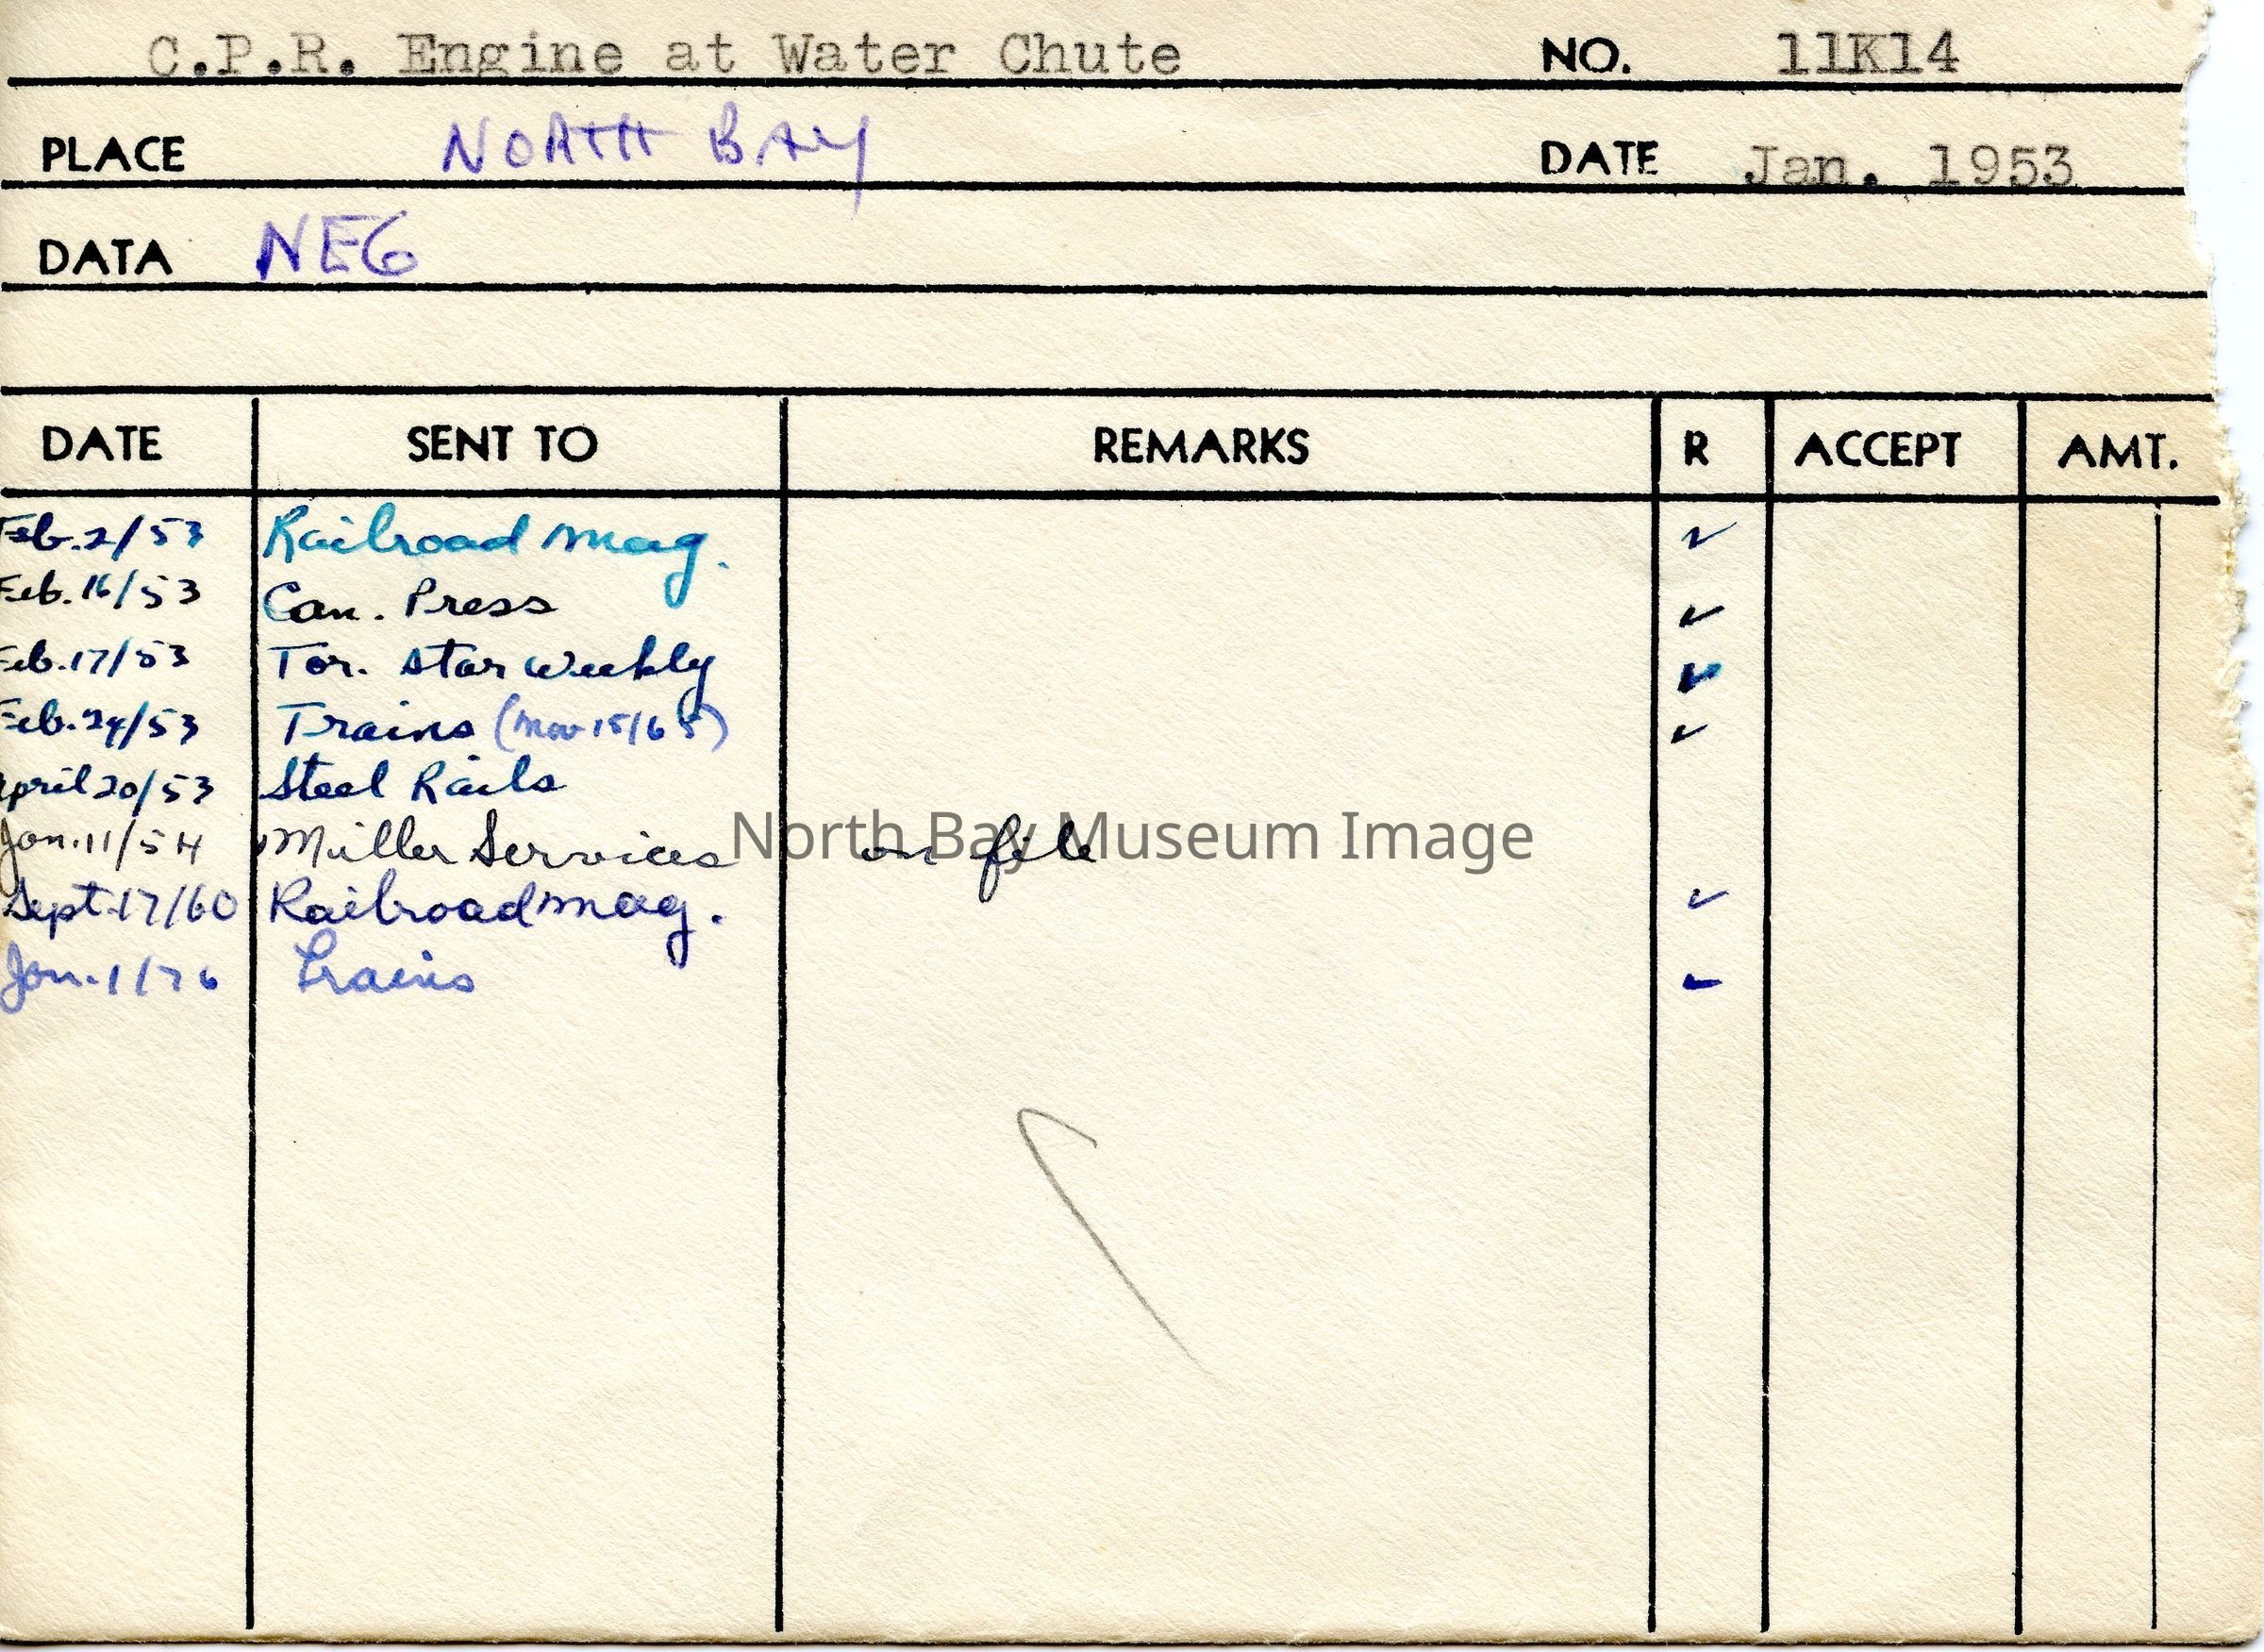 C.P.R. Engine at Water Chute NO. 11K14
PLACE NORTH BAY DATE Jan. 1953
DATA NEG
DATE SENT TO REMARKS R ACCEPT AMT.
Feb. 2/53 Railroad Mag. ✓
Feb. 16/53 Can. Press ✓
Feb. 17/53 Tor. Star Weekly ✓
Feb. 24/53 Trains (Nov 15/65) ✓
April 20/53 Steel Rails
Jan. 11/54 Miller Services on file
Sept 17/60 Railroad Mag. ✓
Jan. 1/76 Trains ✓
North Bay Museum Image